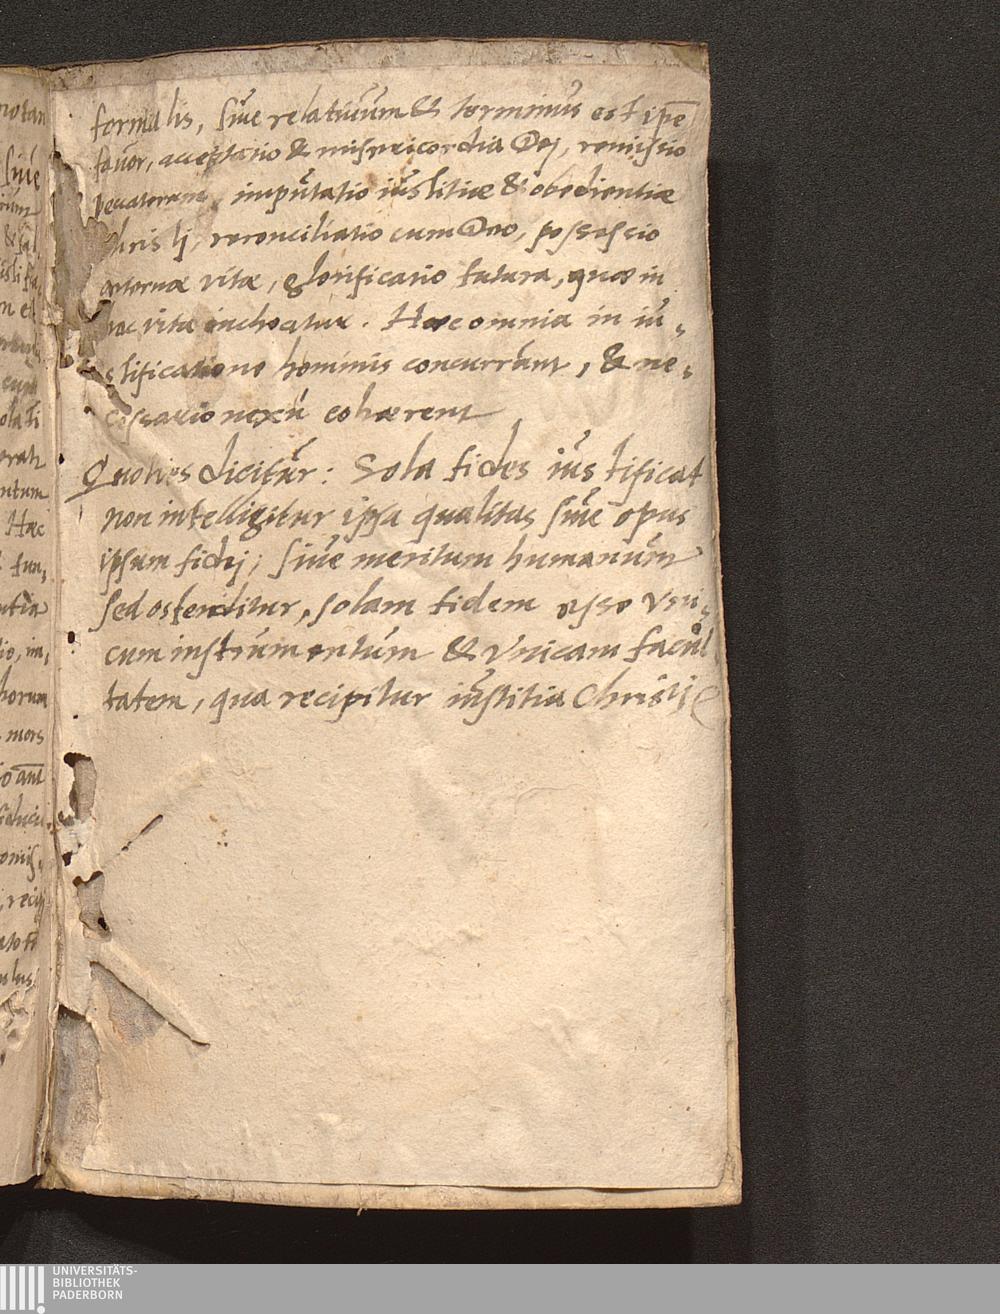 formalis, siúe relatiúúm & terminús est ipē
faúor, acceptatio & misericordia Dej, remissio
peccatorum, impútatio iústitiæ & obedientiæ
Christj, reconciliatio cum Deo, possessio
æternæ vitæ, glorificatio futura, quæ in
hac vita inchoatur. Hæc omnia in iú,
stificatione hominis concurrúnt, & ne,
cessario nexú cohærent
Quoties dicitúr: Sola fides iústificat
non intelligitur ipsa qualitas siúe opus
ipsum fidej; siúe meritum humanúm
sed ostenditur, solam fidem esse vni,
cum instrúmentúm & vnicam facúl
tatem, qua recipitur iústitia Christj
notan
siúe
& sal
Hæc
fun,
horum
mors
recip
UNIVERSITÄTS-
BIBLIOTHEK
PADERBORN